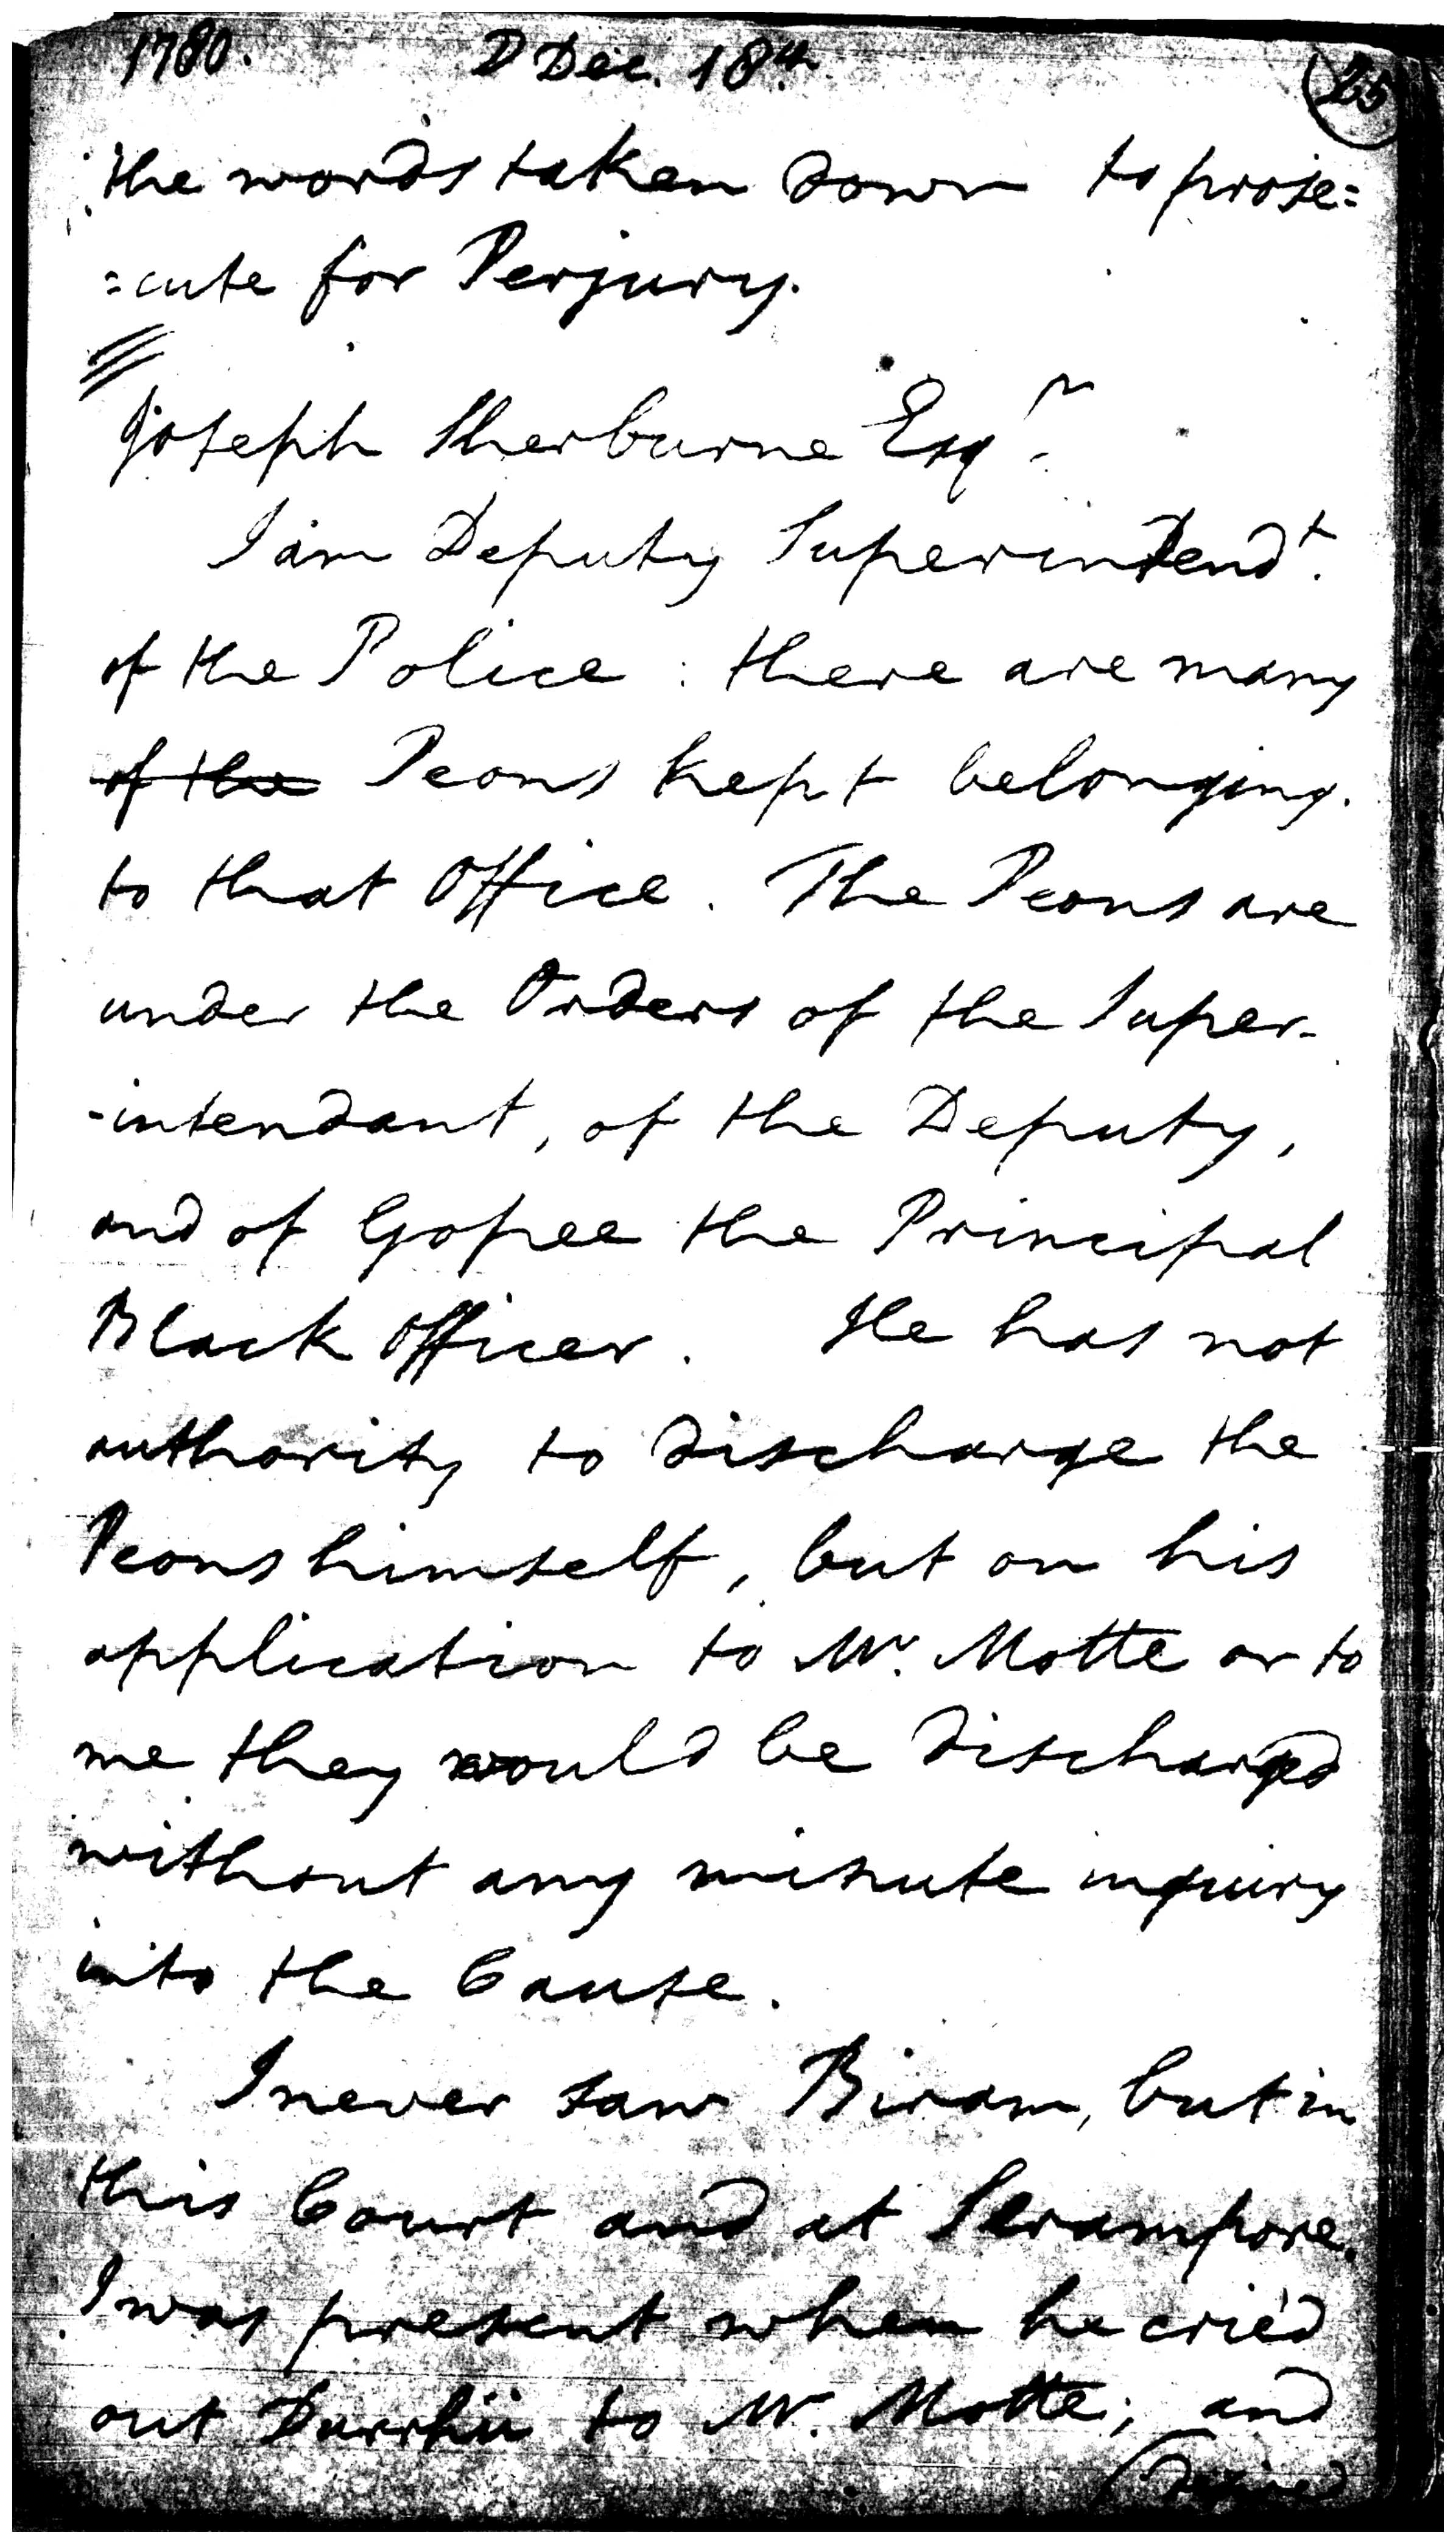 1780. D Dec. 18th. 25
the words taken down to prose=
=cute for Perjury.
Joseph Sherburne Esqr.
I am Deputy Superintendt.
of the Police : there are many
of the Peons kept belonging.
to that Office. The Peons are
under the Orders of the Super-
-intendant, of the Deputy,
and of Gopee the Principal
Black Officer. He has not
authority to discharge the
Peons himself, but on his
application to Mr. Motte or to
me they would be discharged
without any minute inquiry
into the Cause.
I never saw Biram, but in
this Court and at Serampore.
I was present when he cried
out to Mr. Motte; and
(desired